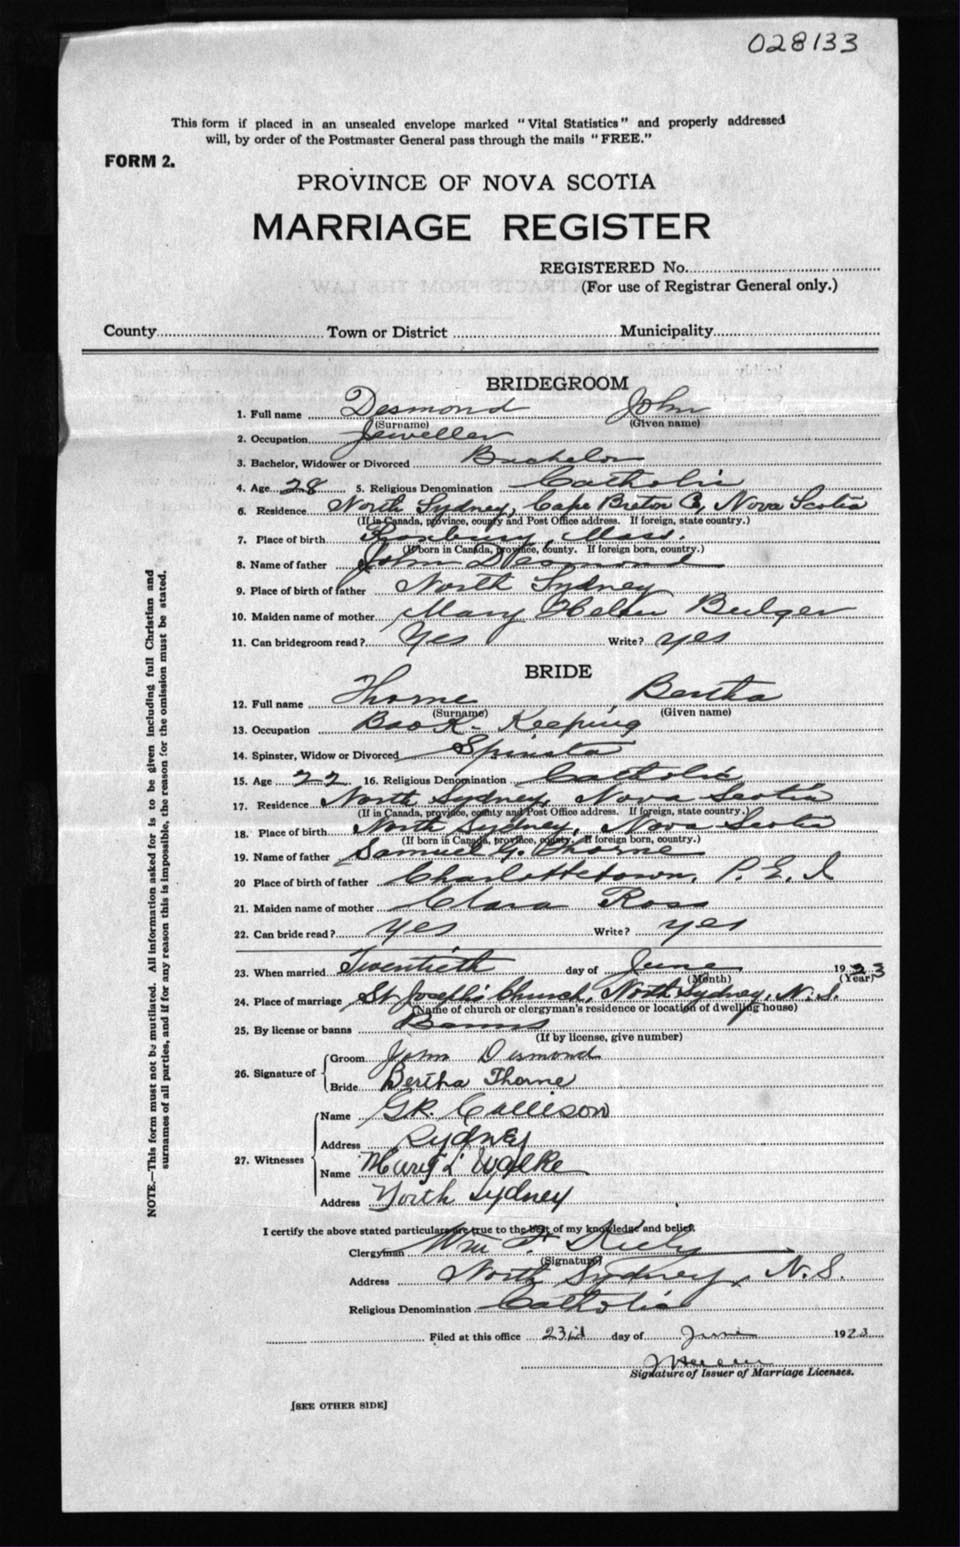 028133
This form if placed in an unsealed envelope marked "Vital Statistics" and properly addressed
will, by order of the Postmaster General pass through the mails "FREE."
FORM 2.
PROVINCE OF NOVA SCOTIA
MARRIAGE REGISTER
REGISTERED No.
(For use of Registrar General only.)
County Town or District Municipality
BRIDEGROOM
1. Full name Desmond John
(Surname) (Given name)
2. Occupation Jeweller
3. Bachelor, Widower or Divorced Bachelor
4. Age 28 5. Religious Denomination Catholic
6. Residence North Sydney, Cape Breton Co, Nova Scotia
(If in Canada, province, county and Post Office address. If foreign, state country.)
7. Place of birth Roxbury, Mass.
(If born in Canada, province, county. If foreign born, country.)
8. Name of father John Desmond
9. Place of birth of father North Sydney
10. Maiden name of mother Mary Helen Bulger
11. Can bridegroom read? Yes Write? yes
BRIDE
12. Full name Thorne Bertha
(Surname) (Given name)
13. Occupation Book-Keeping
14. Spinster, Widow or Divorced Spinster
15. Age 22 16. Religious Denomination Catholic
17. Residence North Sydney, Nova Scotia
(If in Canada, province, county and Post Office address. If foreign, state country.)
18. Place of birth North Sydney, Nova Scotia
(If born in Canada, province, county. If foreign born, country.)
19. Name of father Samuel Thorne
20 Place of birth of father Charlottetown, P.E.I
21. Maiden name of mother Clara Ross
22. Can bride read? yes Write? yes
23. When married Twentieth day of June 1923
(Month) (Year)
24. Place of marriage St Joseph's Church, North Sydney, N.S.
(Name of church or clergyman's residence or location of dwelling house)
25. By license or banns Banns
(If by license, give number)
26. Signature of Groom John Desmond
Bride Bertha Thorne
27. Witnesses Name Callison
Address Sydney
Name Mary L Walke
Address North Sydney
I certify the above stated particulars are true to the best of my knowledge and belief.
Clergyman Wm F. Kiely
(Signature)
Address North Sydney, N.S.
Religious Denomination Catholic
Filed at this office 23rd day of June 1923
Signature of Issuer of Marriage Licenses.
[SEE OTHER SIDE]
NOTE.—This form must not be mutilated. All information asked for is to be given including full Christian and
surnames of all parties, and if for any reason this is impossible, the reason for the omission must be stated.